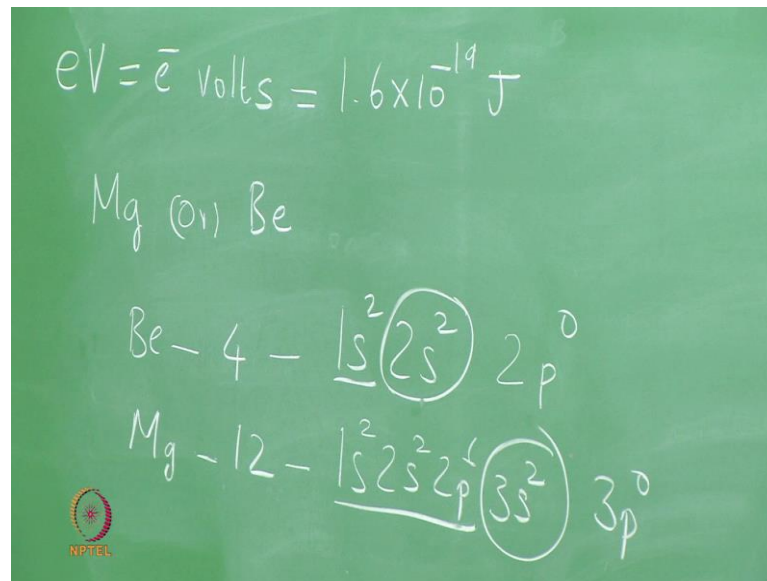 eV = e̅ volts = 1.6x10⁻¹⁹ J
Mg (or) Be
Be - 4 - 1s² 2s² 2p⁰
Mg - 12 - 1s² 2s² 2p⁶ 3s² 3p⁰
NPTEL